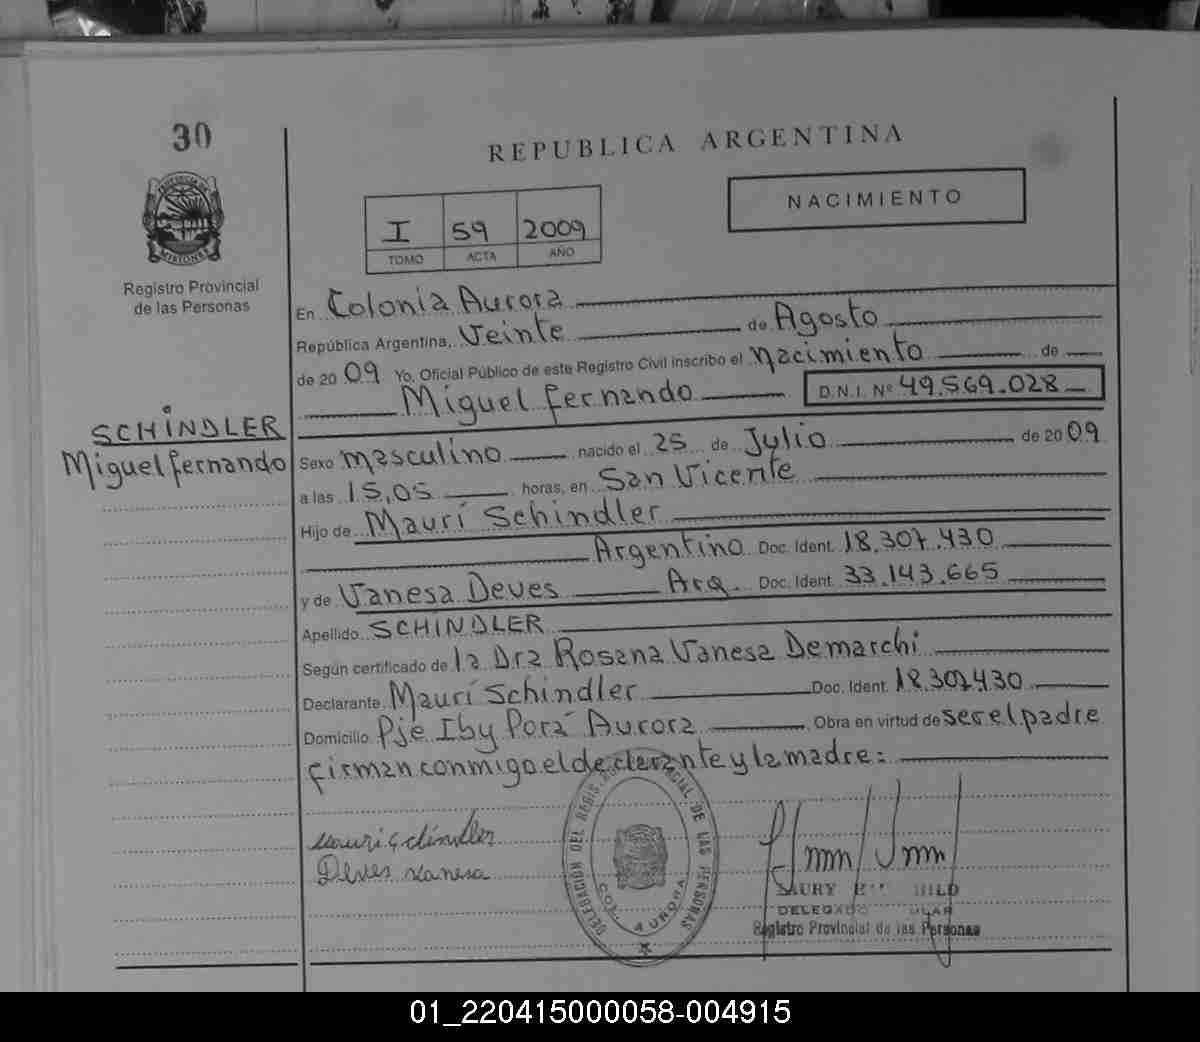 30
REPUBLICA ARGENTINA
PROVINCIA DE
MISIONES
Registro Provincial
de las Personas
I 59 2009
TOMO ACTA AÑO
NACIMIENTO
En Colonia Aurora
República Argentina, Veinte de Agosto
de 2009 Yo, Oficial Público de este Registro Civil inscribo el nacimiento de
Miguel fernando D.N.I. Nº 49.569.028
SCHINDLER
Miguel fernando
Sexo masculino nacido el 25 de Julio de 2009
a las 15,05 horas, en San Vicente
Hijo de Maurí Schindler
Argentino Doc. Ident. 18.307.430
y de Vanesa Deves Arg. Doc. Ident. 33.143.665
Apellido SCHINDLER
Según certificado de la Dra Rosana Vanesa Demarchi
Declarante Maurí Schindler Doc. Ident. 18.307.430
Domicilio Pje Iby Porá Aurora Obra en virtud de ser el padre
firman conmigo el declarante y la madre:
Mauri Schindler
Deves Vanesa
DELEGACIÓN DEL REGISTRO PROVINCIAL DE LAS PERSONAS
COL. AURORA
DELEGADO
Registro Provincial de las Personas
01_220415000058-004915